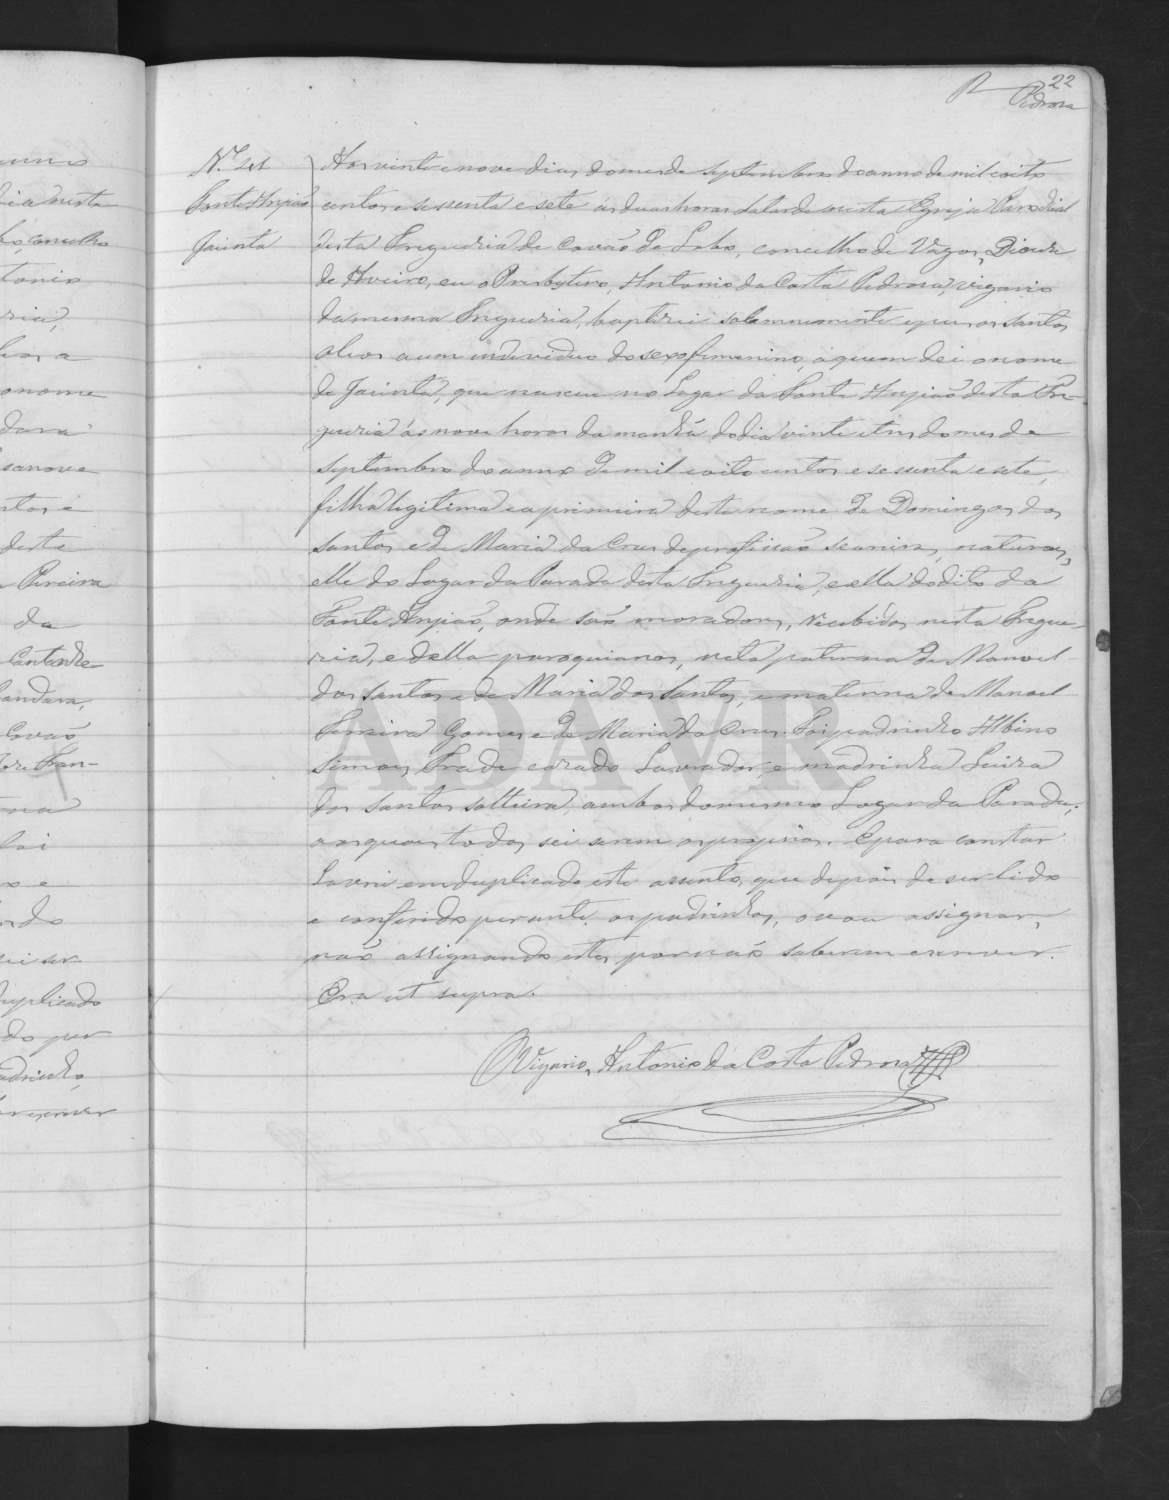 22
Pedrosa
Aos vinte e nove dias do mes de Septembro do anno de mil eoito
Fonte Anjião centos e sessenta e sete ás duas horas da tarde nesta Egreja Parochial
Jacinta desta Freguezia de Covão do Lobo, concelho de Vagos, Diocese
de Aveiro, eu o Presbytero, Antonio da Costa Pedrosa, vigario
da mesma Freguezia, baptizei solemnemente e puz os santos
oleos a um individuo do sexo femenino, a quem dei o nome
de Jacinta, que nasceu no Logar da Fonte Anjião desta Fre-
guezia ás nove horas da manhã do dia vinte e tres do mes de
Septembro do anno de mil eoito centos e sessenta e sete,
filha legitima e a primeira deste nome de Domingos dos
Santos e de Maria da Cruz de profissão seareiros, naturaes,
elle do Logar da Parada desta Freguezia, e ella do dito da
Fonte Anjião, onde são moradores, recebidos nesta Fregue-
zia, e della paroquianos, neta paterna de Manoel
dos Santos e de Maria dos Santos, e materna de Manoel
Ferreira Gomes e de Maria da Cruz. Foi padrinho Albino
Simoes Frade cazado Lavrador, e madrinha Luiza
dos Santos solteira, ambos do mesmo Logar da Parada,
os quaes todos sei serem os proprios. E para constar
Lavrei em duplicado este assento, que depois de ser lido
e conferido perante os padrinhos, o vou assignar,
não assignando estes por não saberem escrever.
Era ut supra.
O Vigario, Antonio da Costa Pedrosa
ADAVR